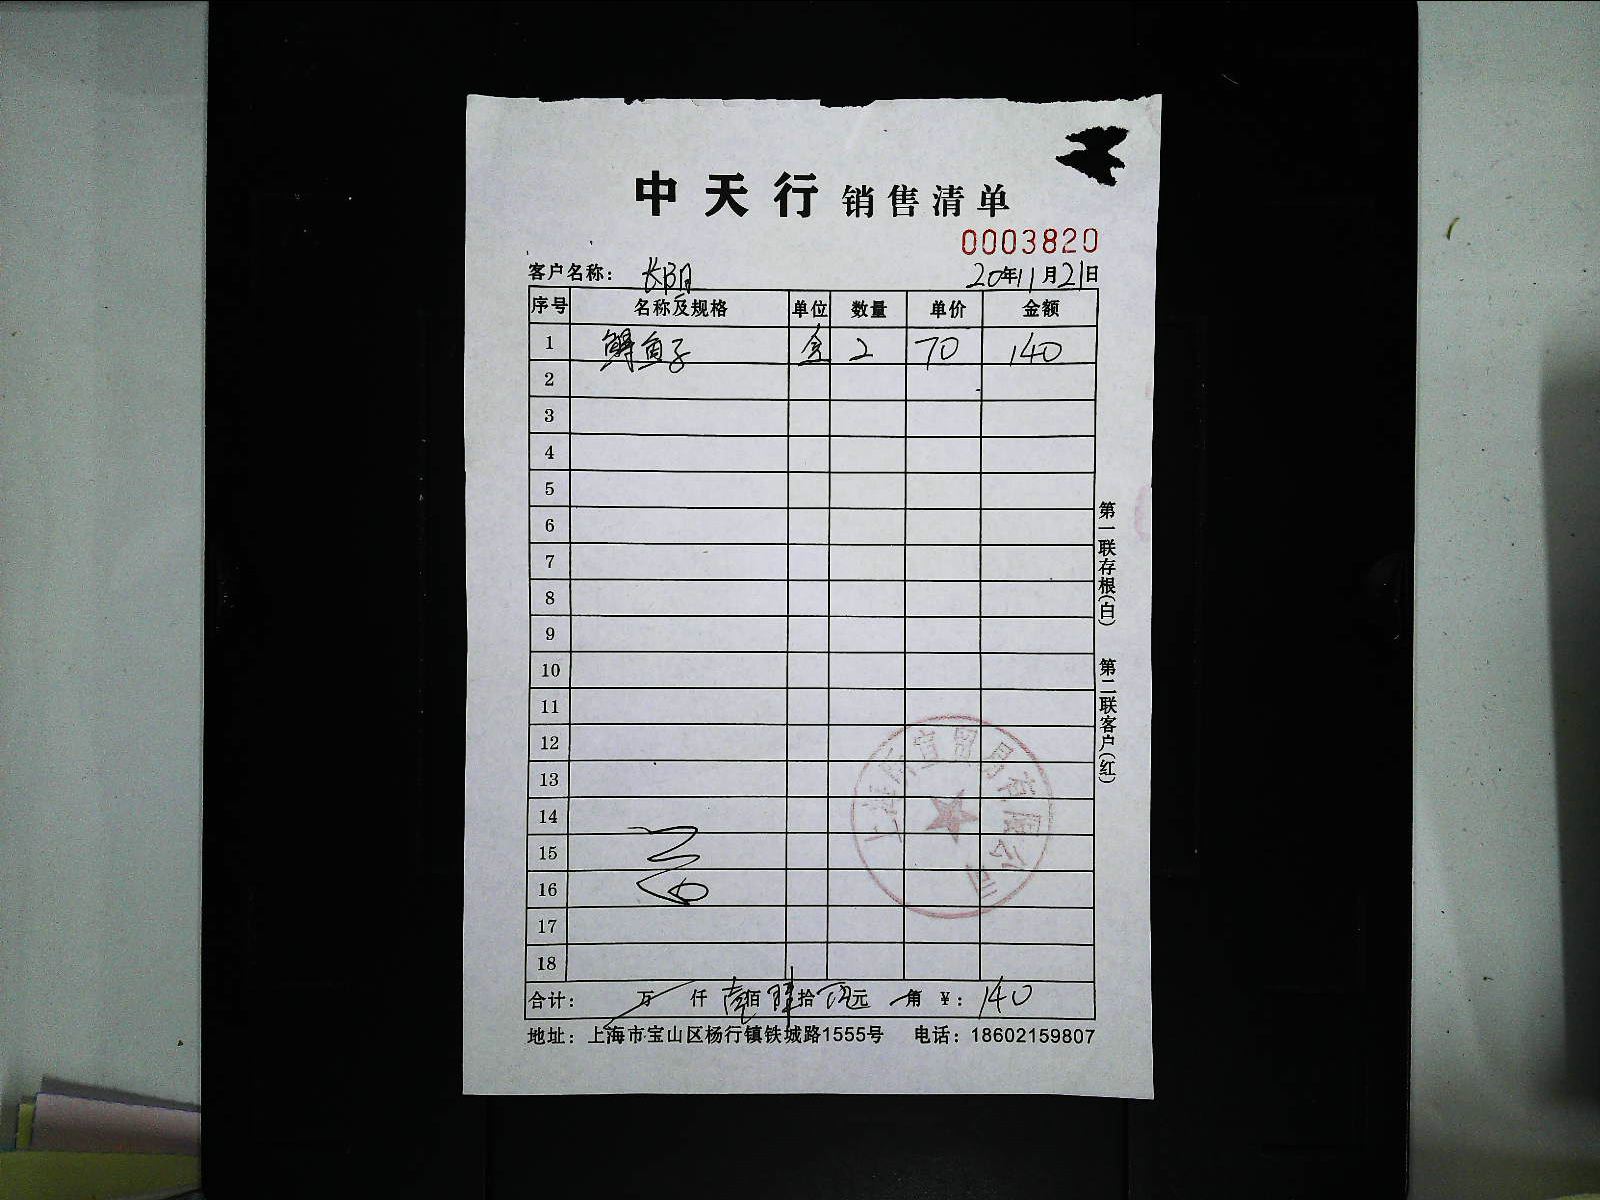 中天行 销售清单
0003820
客户名称： 长阳 20年11月21日
序号 名称及规格 单位 数量 单价 金额
1 鲟鱼子 盒 2 70 140
2
3
4
5
6
7
8
9
10
11
12
13
14
15
16
17
18
合计： 万 仟 壹佰 肆拾 元 角 ￥： 140
地址：上海市宝山区杨行镇铁城路1555号 电话：18602159807
第一联存根（白） 第二联客户（红）
上海 宜贸易有限公司